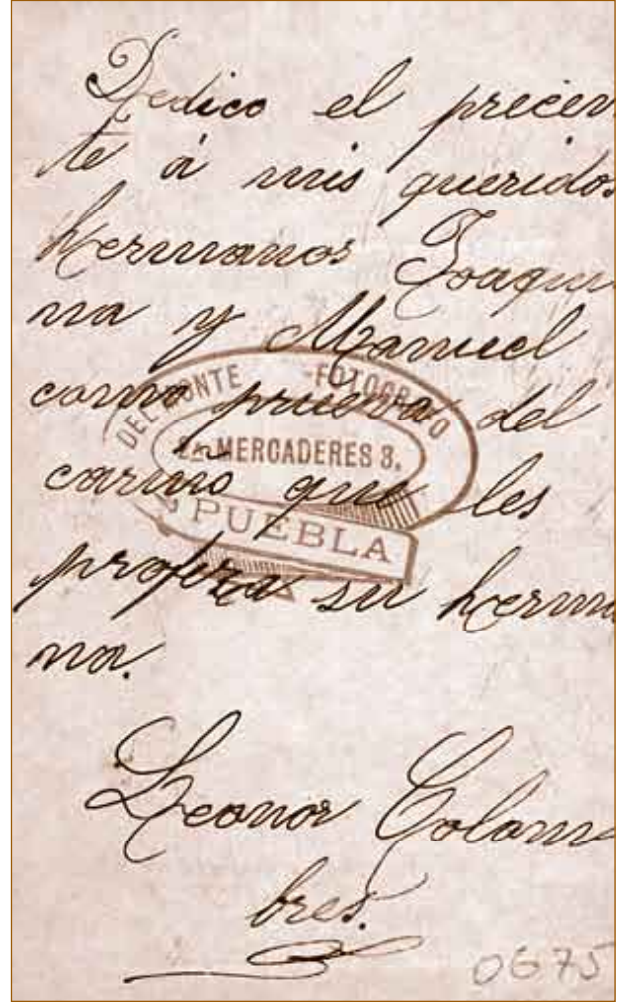 Dedico el precen
te á mis queridos
hermanos Joaqui
na y Manuel
como prueva del
cariño que les
profeza su herma
na.
Leonor Colom
bres.
DEL MONTE FOTOGRAFO
2A. MERCADERES 3.
PUEBLA
0675